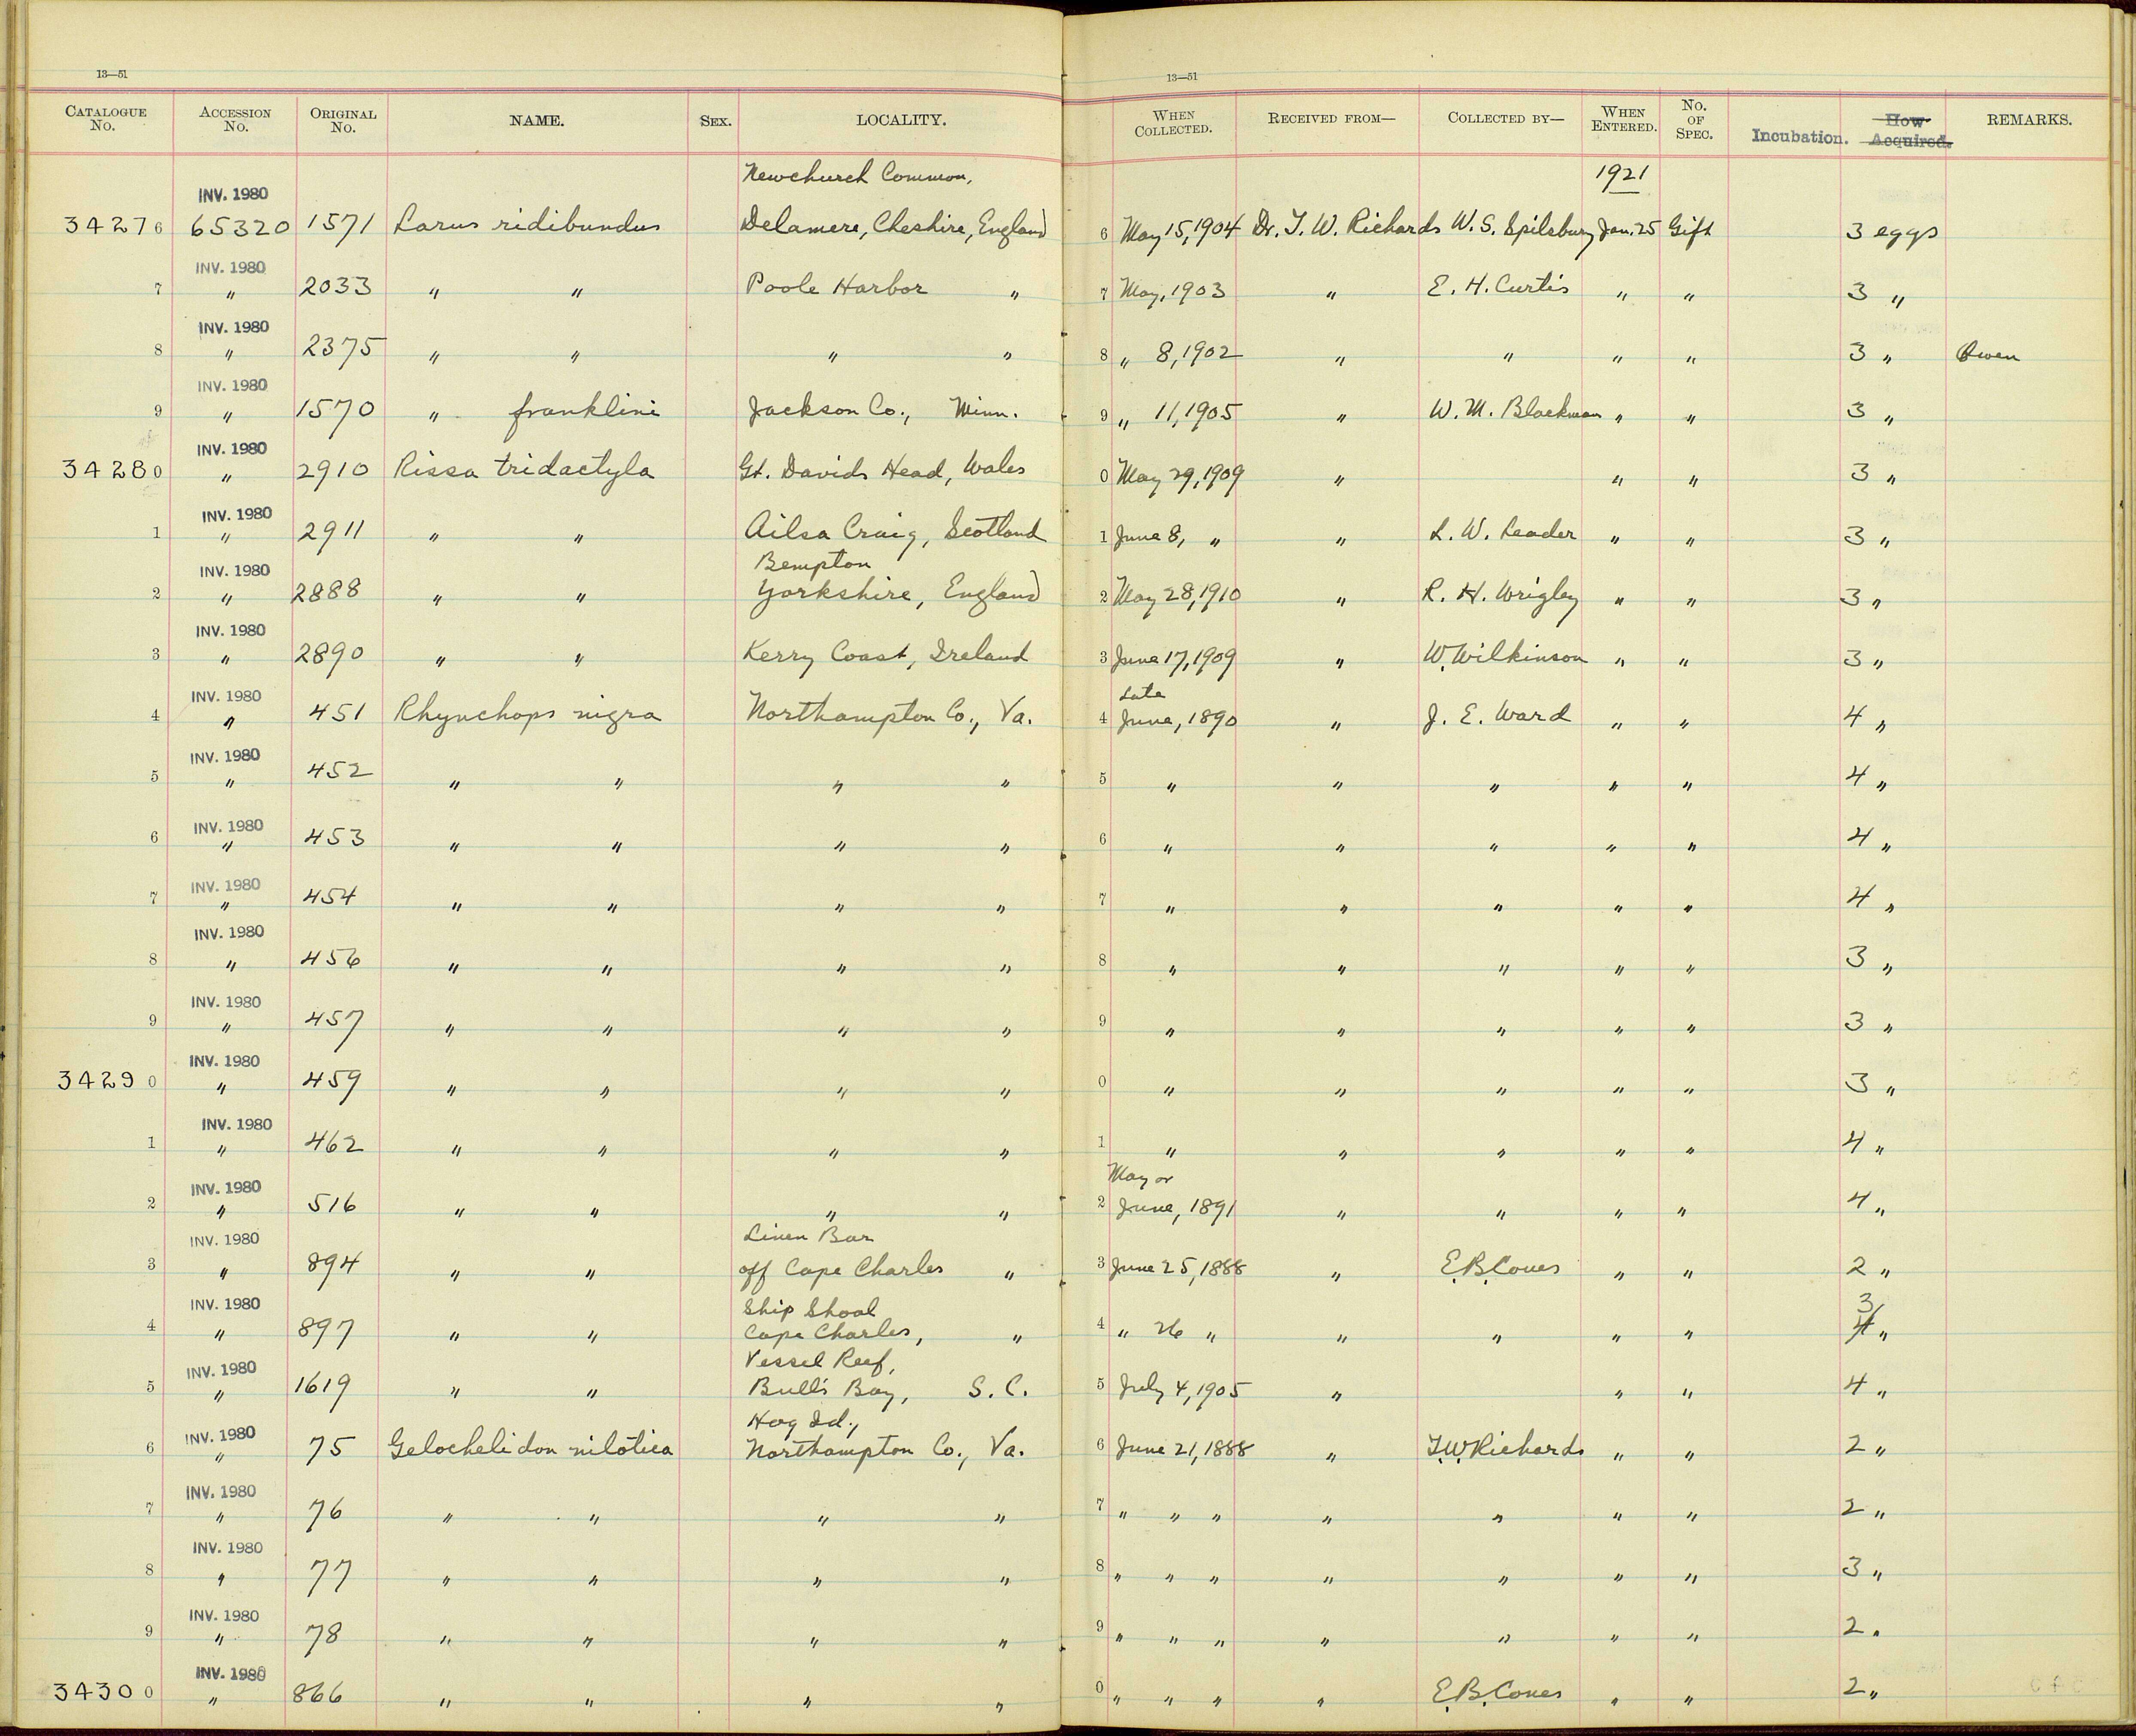 13—51
13—51
CATALOGUE No. ACCESSION No. ORIGINAL No. NAME. SEX. LOCALITY. WHEN COLLECTED. RECEIVED FROM— COLLECTED BY— WHEN ENTERED. No. OF SPEC. Incubation. How Acquired. REMARKS.
Newchurch Common, 1921
INV. 1980
34276 65320 1571 Larus ridibundus Delamere, Cheshire, England 6 May 15, 1904 Dr. T. W. Richards W. S. Spilsbury Jan. 25 Gift 3 eggs
INV. 1980
7 " 2033 " " Poole Harbor " 7 May, 1903 " E. H. Curtis " " 3 "
INV. 1980
8 " 2375 " " " " 8 " 8, 1902 " " " " 3 " Owen
INV. 1980
9 " 1570 " franklini Jackson Co., Minn. 9 " 11, 1905 " W. M. Blackman " " 3 "
INV. 1980
34280 " 2910 Rissa tridactyla St. Davids Head, Wales 0 May 29, 1909 " " " 3 "
INV. 1980
1 " 2911 " " Ailsa Craig, Scotland 1 June 8, " " L. W. Leader " " 3 "
INV. 1980 Bempton
2 " 2888 " " Yorkshire, England 2 May 28, 1910 " R. H. Wrigley " " 3 "
INV. 1980
3 " 2890 " " Kerry Coast, Ireland 3 June 17, 1909 " W. Wilkinson " " 3 "
INV. 1980 Late
4 " 451 Rhynchops nigra Northampton Co., Va. 4 June, 1890 " J. E. Ward " " 4 "
INV. 1980
5 " 452 " " " " 5 " " " " " 4 "
INV. 1980
6 " 453 " " " " 6 " " " " " 4 "
INV. 1980
7 " 454 " " " " 7 " " " " " 4 "
INV. 1980
8 " 456 " " " " 8 " " " " " 3 "
INV. 1980
9 " 457 " " " " 9 " " " " " 3 "
INV. 1980
34290 " 459 " " " " 0 " " " " " 3 "
INV. 1980
1 " 462 " " " " 1 " " " " " 4 "
INV. 1980 May or
2 " 516 " " " " 2 June, 1891 " " " " 4 "
INV. 1980 Linen Bar
3 " 894 " " off Cape Charles " 3 June 25, 1888 " E. B. Coues " " 2 "
INV. 1980 Ship Shoal 3
4 " 897 " " Cape Charles, " 4 " 26 " " " " " 4 "
INV. 1980 Vessel Reef,
5 " 1619 " " Bull's Bay, S. C. 5 July 4, 1905 " " " 4 "
INV. 1980 Hog Id.,
6 " 75 Gelochelidon nilotica Northampton Co., Va. 6 June 21, 1888 " T. W. Richards " " 2 "
INV. 1980
7 " 76 " " " " 7 " " " " " " " 2 "
INV. 1980
8 " 77 " " " " 8 " " " " " " " 3 "
INV. 1980
9 " 78 " " " " 9 " " " " " " " 2 "
INV. 1980
34300 " 866 " " " " 0 " " " " E. B. Coues " " 2 "